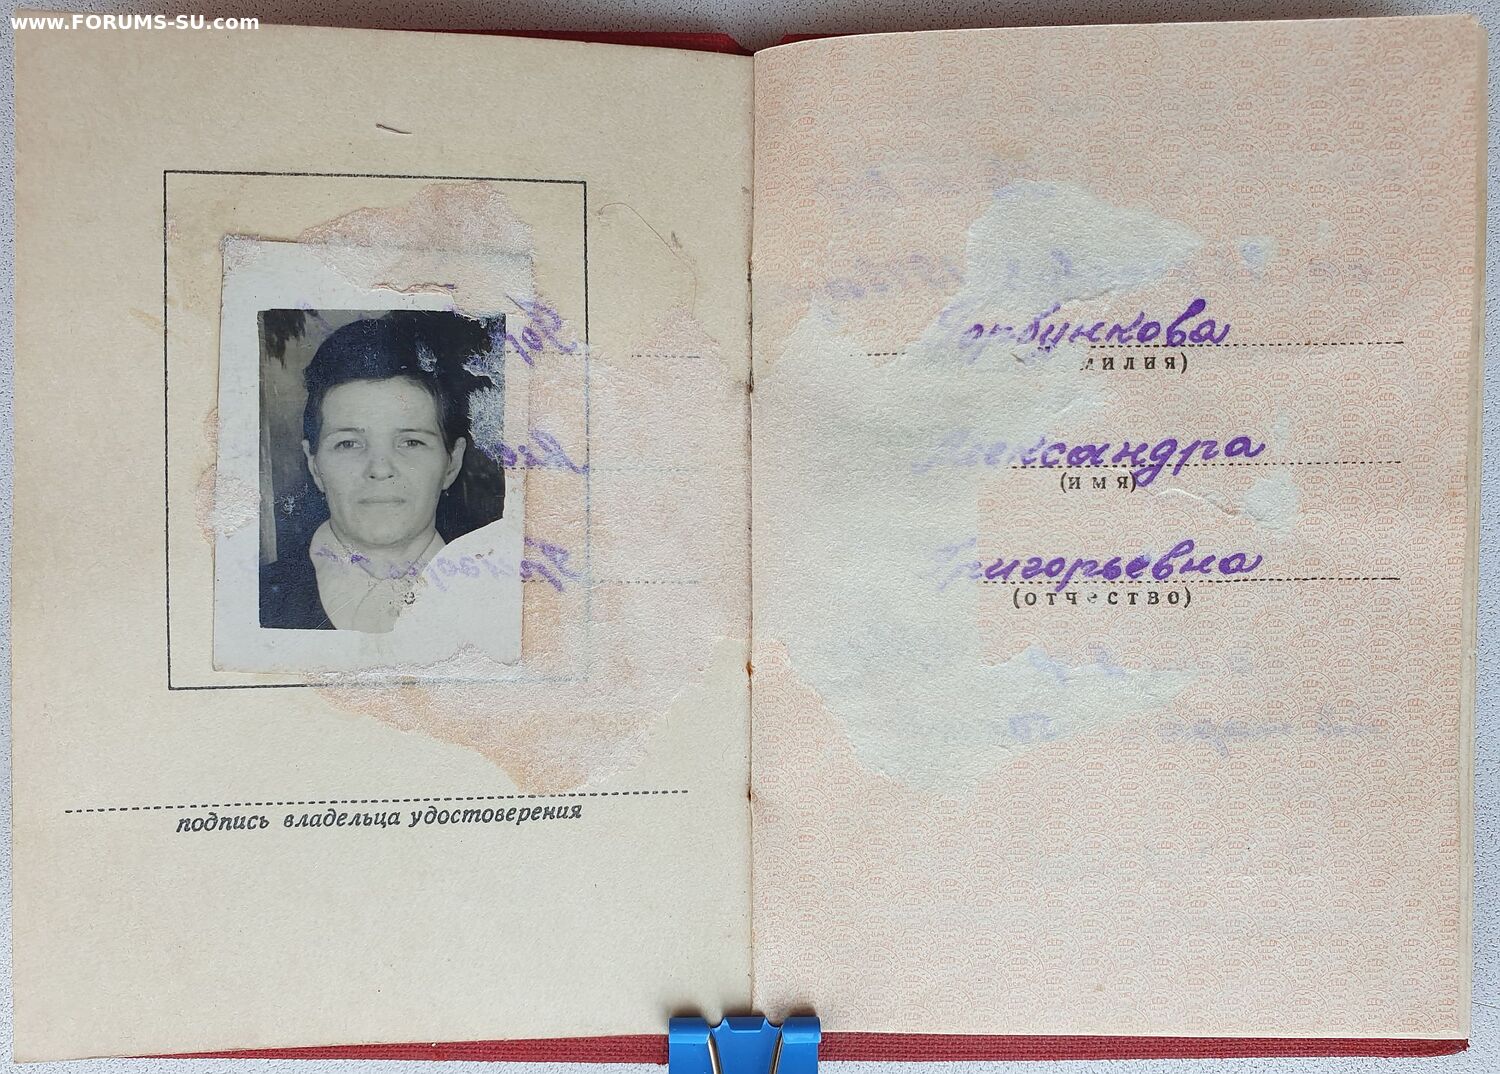 www.FORUMS-SU.com
подпись владельца удостоверения
Горбункова
милия)
Александра
(имя)
Григорьевна
(отчество)